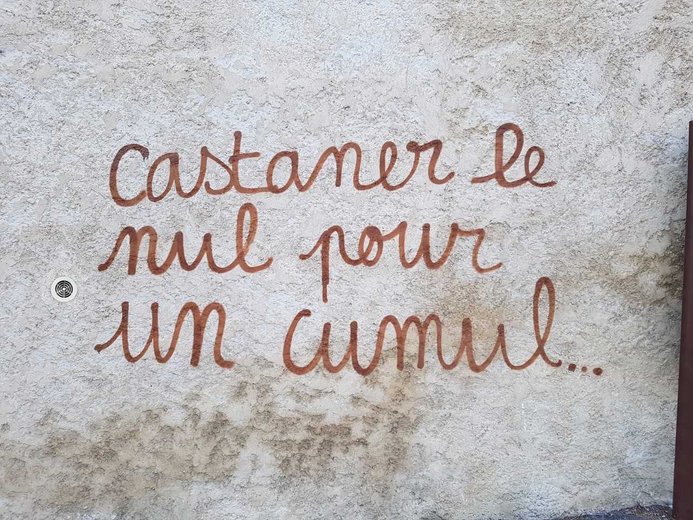 Castaner le
nul pour
un cumul...